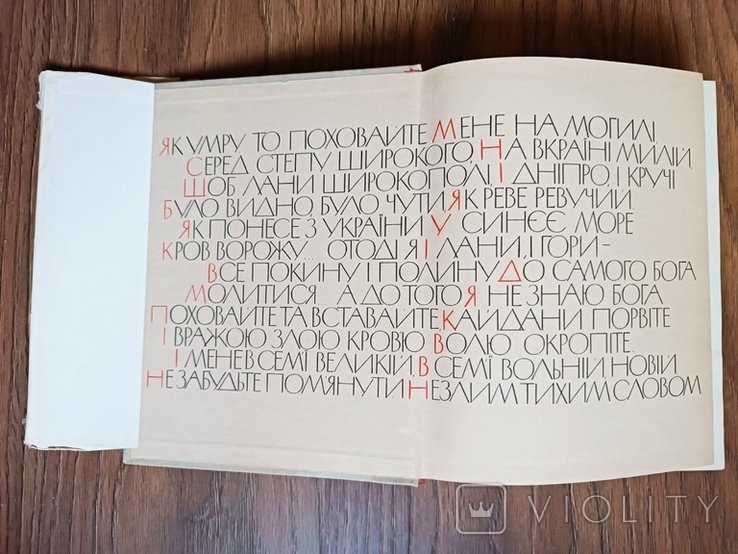 ЯК УМРУ ТО ПОХОВАЙТЕ МЕНЕ НА МОГИЛІ
СЕРЕД СТЕПУ ШИРОКОГО, НА ВКРАЇНІ МИЛІЙ,
ЩОБ ЛАНИ ШИРОКОПОЛІ І ДНІПРО, І КРУЧІ
БУЛО ВИДНО, БУЛО ЧУТИ, ЯК РЕВЕ РЕВУЧИЙ.
ЯК ПОНЕСЕ З УКРАЇНИ У СИНЄЄ МОРЕ
КРОВ ВОРОЖУ... ОТОДІ Я І ЛАНИ, І ГОРИ –
ВСЕ ПОКИНУ І ПОЛИНУ ДО САМОГО БОГА
МОЛИТИСЯ... А ДО ТОГО Я НЕ ЗНАЮ БОГА
ПОХОВАЙТЕ ТА ВСТАВАЙТЕ, КАЙДАНИ ПОРВІТЕ
І ВРАЖОЮ ЗЛОЮ КРОВ'Ю ВОЛЮ ОКРОПІТЕ.
І МЕНЕ В СЕМ'Ї ВЕЛИКІЙ, В СЕМ'Ї ВОЛЬНІЙ, НОВІЙ
НЕ ЗАБУДЬТЕ ПОМ'ЯНУТИ НЕЗЛИМ ТИХИМ СЛОВОМ
VIOLITY